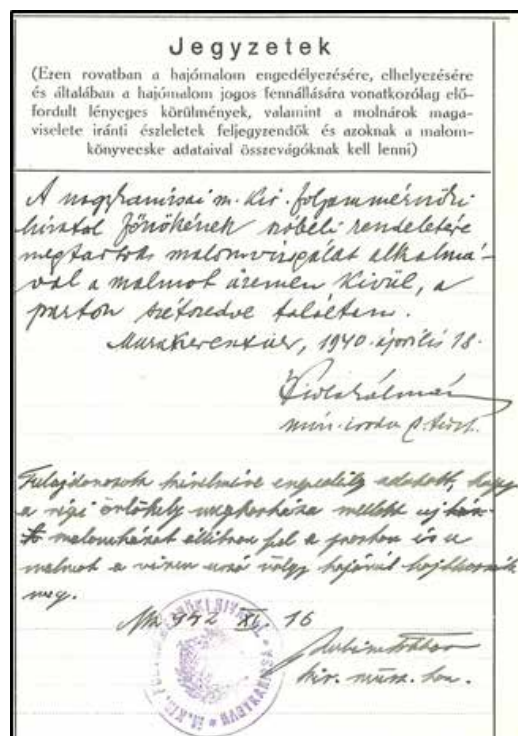 Jegyzetek
(Ezen rovatban a hajómalom engedélyezésére, elhelyezésére
és általában a hajómalom jogos fennállására vonatkozólag elő-
fordult lényeges körülmények, valamint a molnárok maga-
viselete iránti észleletek feljegyzendők és azoknak a malom-
könyvecske adataival összevágóknak kell lenni)
A nagykanizsai m. kir. folyammérnöki
hivatal főnökének szóbeli rendeletére
megtartott malomvizsgálat alkalmá-
val a malmot üzemen kívül, a
parton szétszedve találtam.
Murakeresztúr, 1940. április 18.
Tulajdonosok kérelmére engedély adatott, hogy
a régi őrlőhely megtartása mellett új
malomházat állítson fel a parton és a
malmot a vizen uszó völgy hajóval
meg.
942 XI 16
kir. műsz.